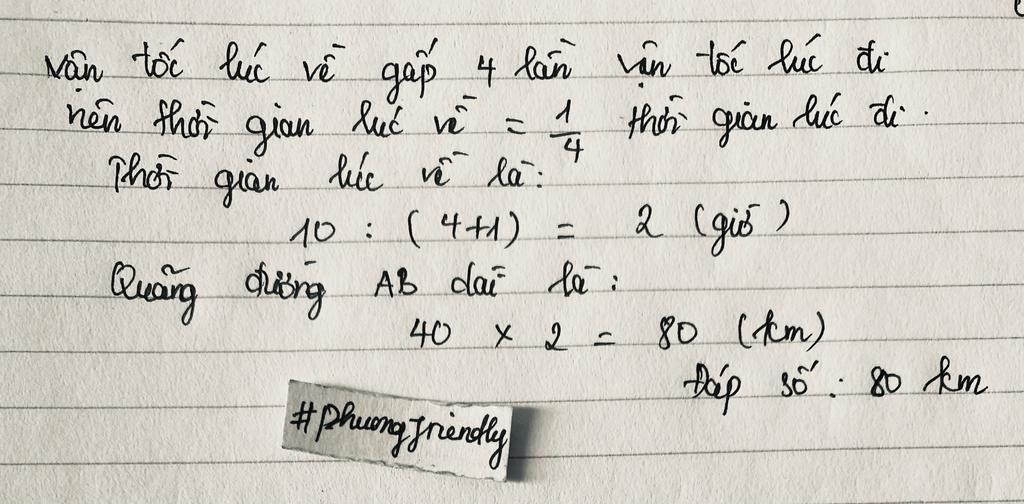 Vận tốc lúc về gấp 4 lần vận tốc lúc đi
nên thời gian lúc về = 1/4 thời gian lúc đi.
Thời gian lúc về là:
10 : (4+1) = 2 (giờ)
Quãng đường AB dài là:
40 x 2 = 80 (km)
Đáp số: 80 km
#phuongfriendly